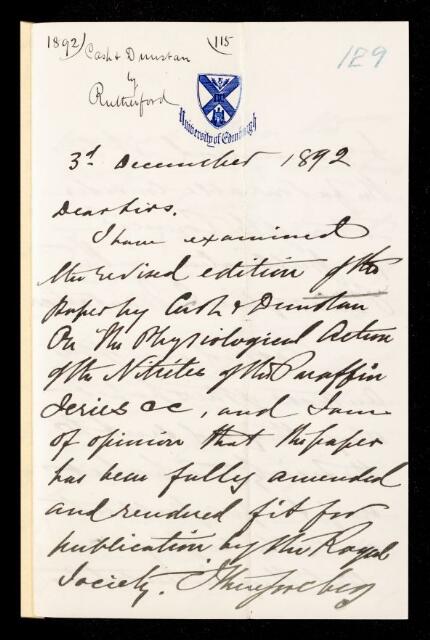 1892)
(115
129
Cash & Dunstan
by
Rutherford
University of Edinburgh
3d December 1892
Dear Sirs.
I have examined
the revised edition of the
paper by Cash & Dunstan
On "The Physiological Action
of the Nitrites of the Paraffin
Series &c, and I am
of opinion that the paper
has been fully amended
and rendered fit for
publication by the Royal
Society. I therefore beg